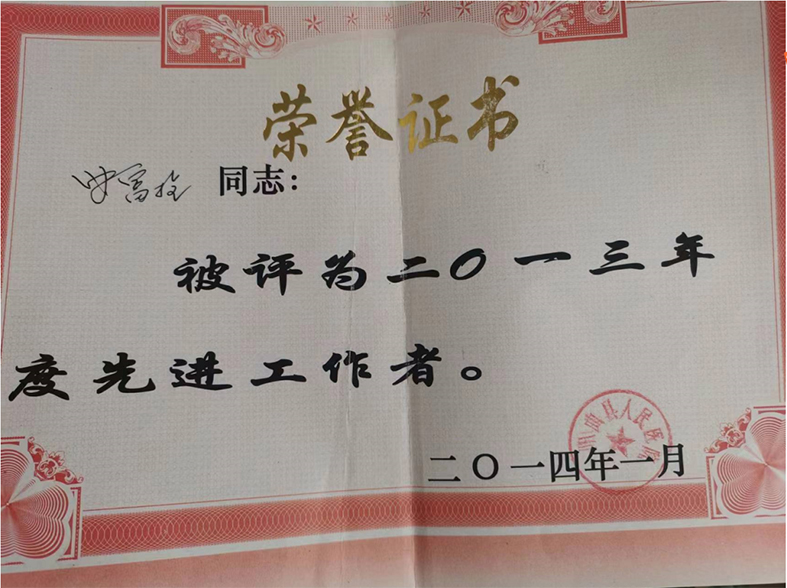 荣誉证书
同志：
被评为二〇一三年
度先进工作者。
曲县人民医
二〇一四年一月